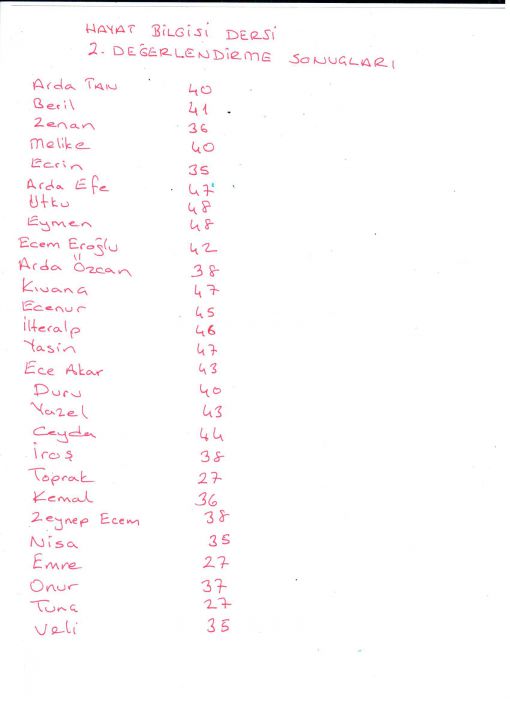 HAYAT BİLGİSİ DERSİ
2. DEĞERLENDİRME SONUÇLARI
Arda TAN 40
Beril 41
Zenan 36
Melike 40
Ecrin 35
Arda Efe 47
Utku 48
Eymen 48
Ecem Eroğlu 42
Arda Özcan 38
Kıvanç 47
Ecenur 45
İlteralp 46
Yasin 47
Ece Akar 43
Duru 40
Yazel 43
Ceyda 44
İroş 38
Toprak 27
Kemal 36
Zeynep Ecem 38
Nisa 35
Emre 27
Onur 37
Tuna 27
Veli 35